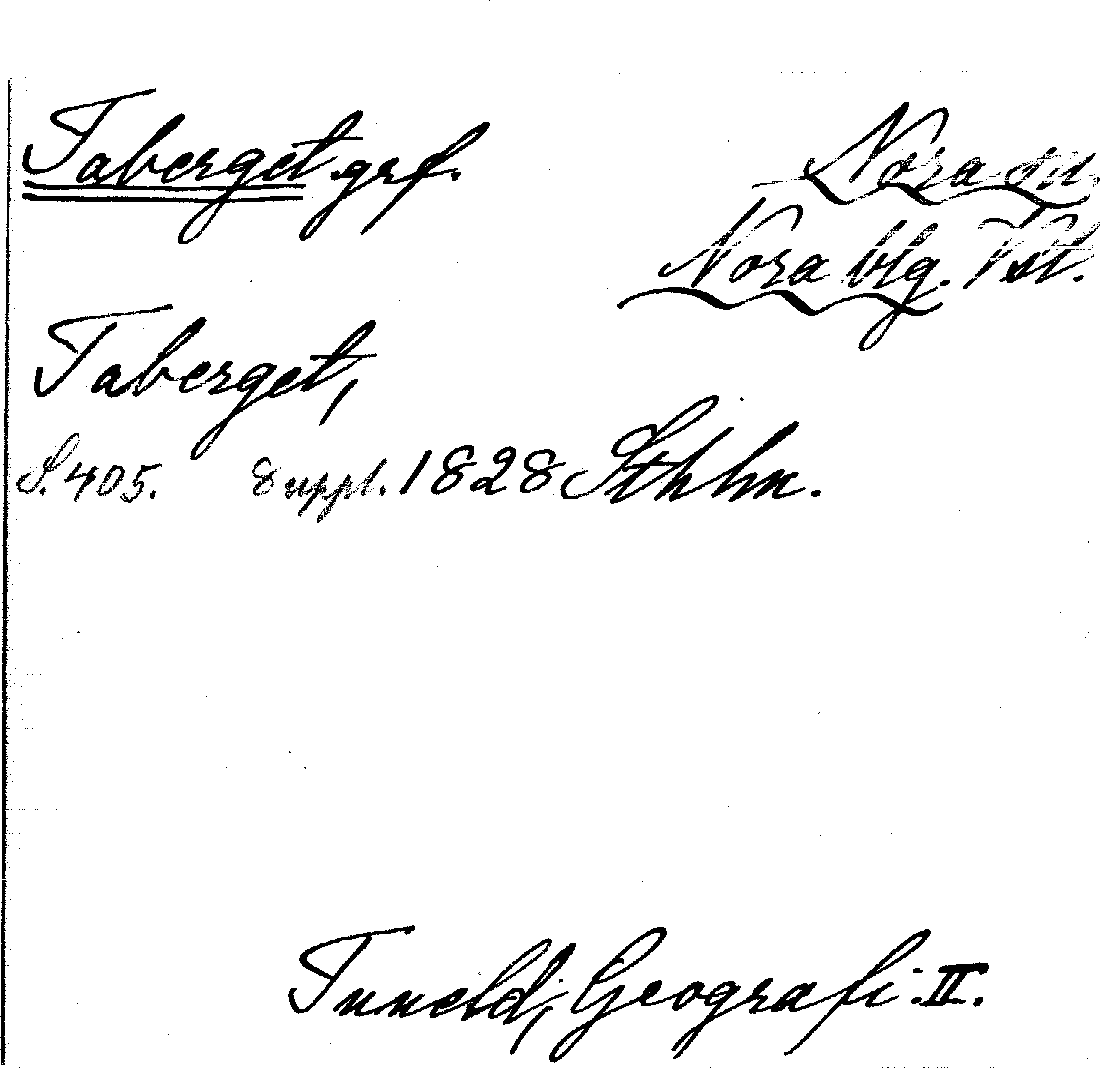 Taberget grf.
Nora sn.
Nora blg. Vstl.
Taberget,
S. 405. Suppl. 1828 Sthlm.
Tuneld, Geografi II.